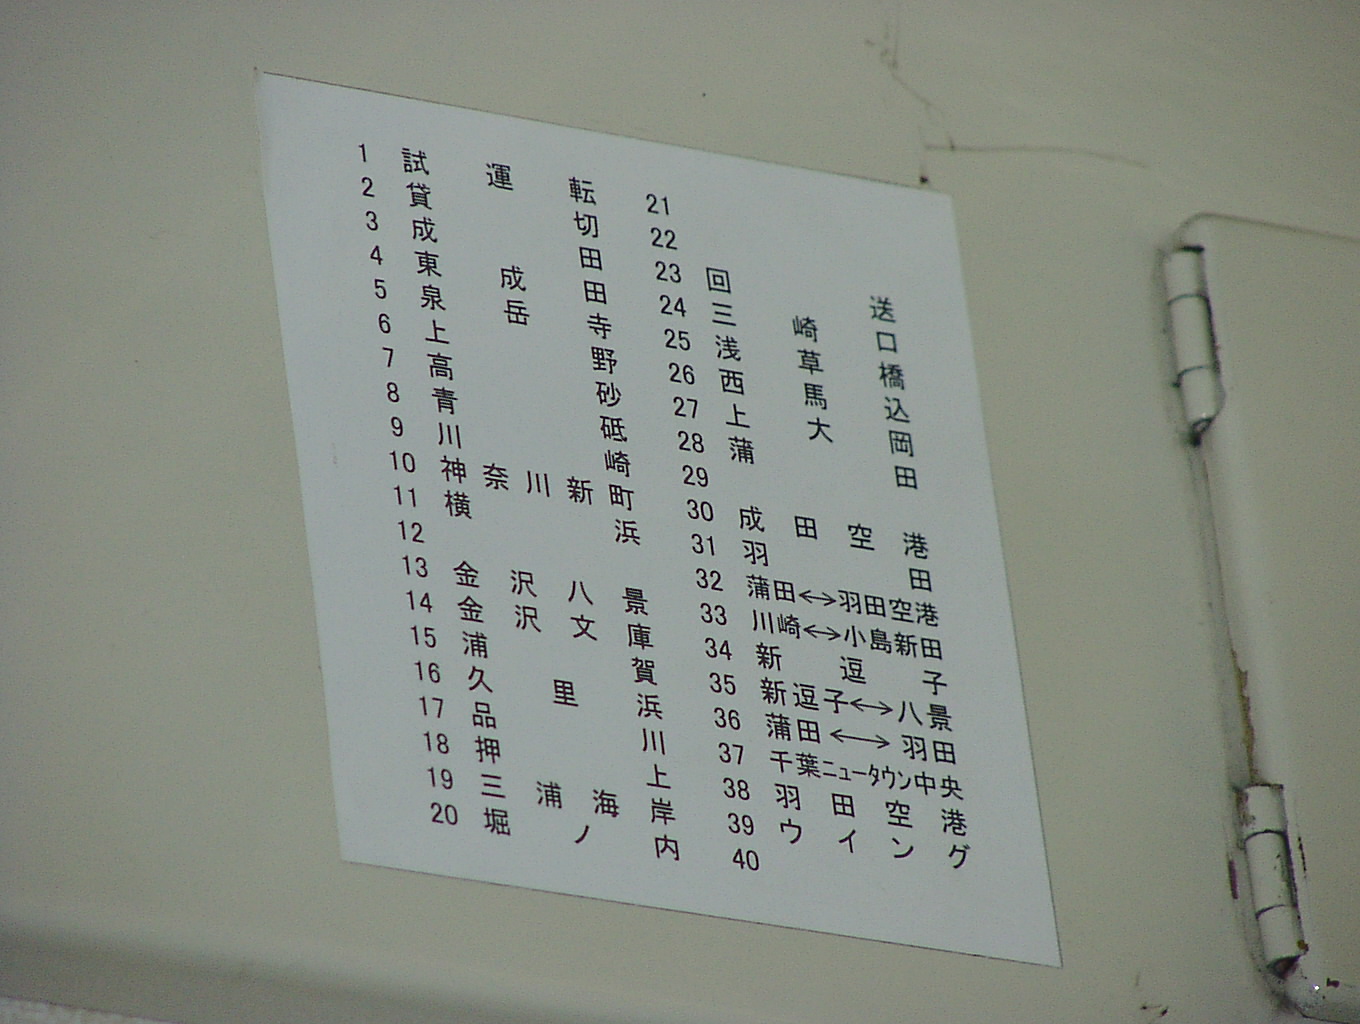 1 試運転
2 貸切
3 成田
4 東成田
5 泉岳寺
6 上野
7 高砂
8 青砥
9 川崎
10 神奈川新町
11 横浜
12
13 金沢八景
14 金沢文庫
15 浦賀
16 久里浜
17 品川
18 押上
19 三浦海岸
20 堀ノ内
21
22
23 回送
24 三崎口
25 浅草橋
26 西馬込
27 上大岡
28 蒲田
29
30 成田空港
31 羽田
32 蒲田↔羽田空港
33 川崎↔小島新田
34 新逗子
35 新逗子↔八景
36 蒲田↔羽田
37 千葉ニュータウン中央
38 羽田空港
39 ウイング
40